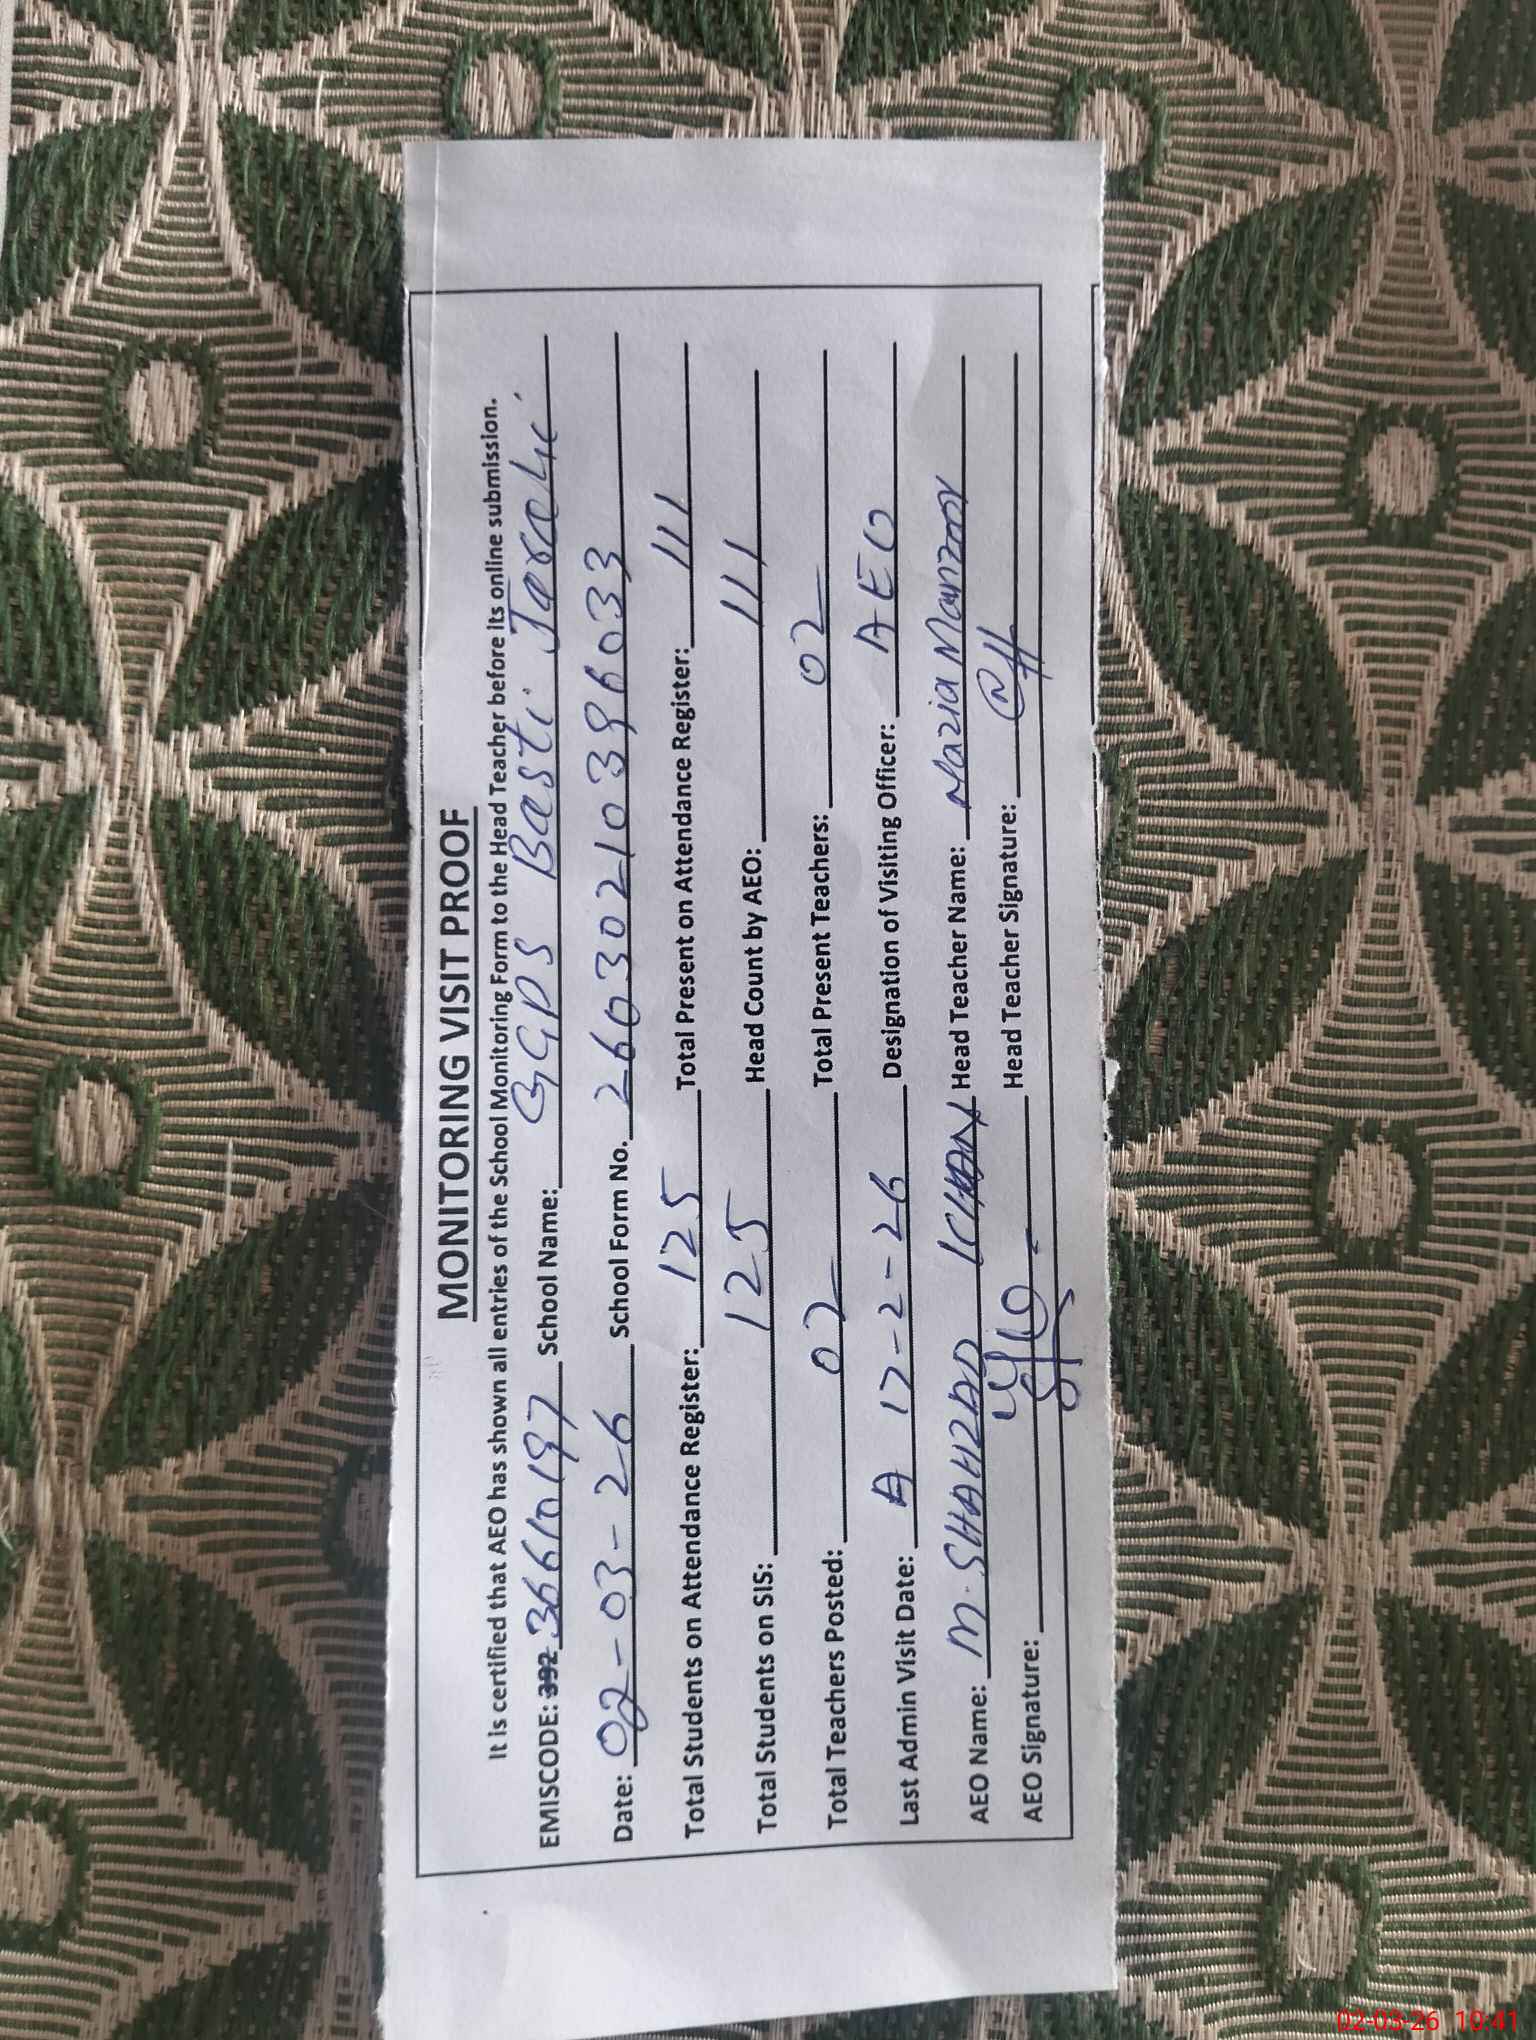 MONITORING VISIT PROOF
It is certified that AEO has shown all entries of the School Monitoring Form to the Head Teacher before its online submission.
EMISCODE: 392 36610197 School Name: GGPS Basti Jarohi
Date: 02-03-26 School Form No. 26030210396033
Total Students on Attendance Register: 125 Total Present on Attendance Register: 111
Total Students on SIS: 125 Head Count by AEO: 111
Total Teachers Posted: 02 Total Present Teachers: 02
Last Admin Visit Date: A 17-2-26 Designation of Visiting Officer: AEO
AEO Name: M. SHAHZAD KHAN Head Teacher Name: Nazia Manzoor
AEO Signature: Head Teacher Signature:
02-03-26 10:41